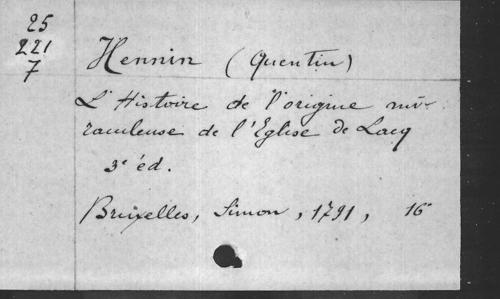 25
221
7
Hennin (Quentin)
L'Histoire de l'origine mi-
raculeuse de l'Eglise de Lacq
3e éd.
Bruxelles, Simon, 1791, 16°